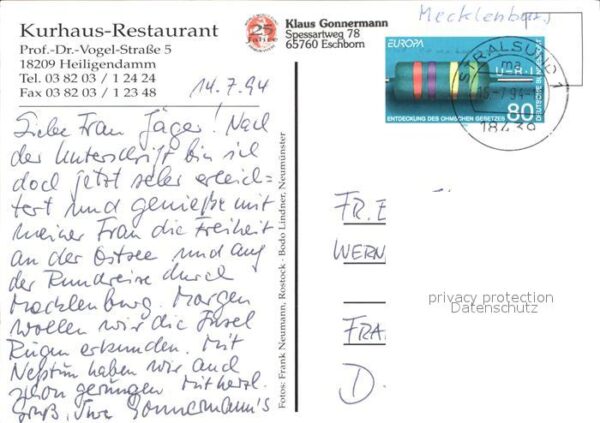 Kurhaus-Restaurant
Prof.-Dr.-Vogel-Straße 5
18209 Heiligendamm
Tel. 03 82 03 / 1 24 24
Fax 03 82 03 / 1 23 48
25
Jahre
Klaus Gonnermann
Spessartweg 78
65760 Eschborn
Mecklenburg
EUROPA
U=R·I
DEUTSCHE BUNDESPOST
ENTDECKUNG DES OHMSCHEN GESETZES
80
STRALSUND 1
ma
15.-7.94
18439
14.7.94
Liebe Frau Jäger! Nach
der Unterschrift bin ich
doch jetzt sehr erleich=
tert und genieße mit
meiner Frau die Freiheit
an der Ostsee und auf
der Rundreise durch
Mecklenburg. Morgen
wollen wir die Insel
Rügen erkunden. Mit
Neptun haben wir auch
schon gerungen. Mit herzl.
Gruß, Ihre Gonnermann's
Fotos: Frank Neumann, Rostock - Bodo Lindner, Neumünster
FR. E
WERN
FRA
D.
privacy protection
Datenschutz